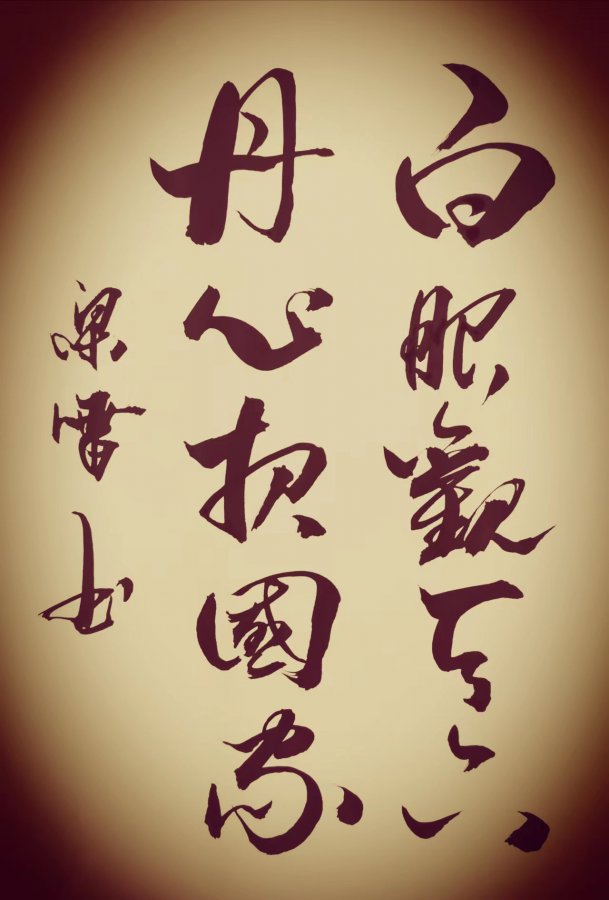 白眼觀天下
丹心报國家
梁雷书